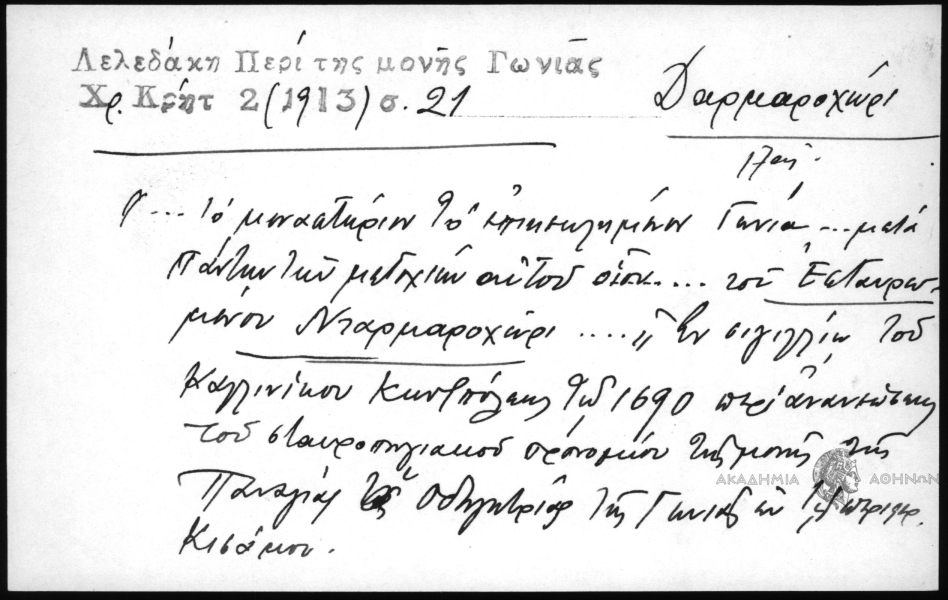 Λελεδάκη Περί της μονής Γωνιάς
Χρ. Κρήτ 2 (1913) σ. 21
Δαρμαροχώρι
17ος.
"... τὸ μοναστήριον τὸ ἐπικεκλημένον Γωνία ... μετὰ
πάντων τῶν μετοχίων αὐτοῦ οἷον .... τοῦ Ἐσταυρω-
μένου Νταρμαροχώρι ...." Ἐν σιγιλλίῳ τοῦ
Καλλινίκου Κωνσ/πόλεως τῷ 1690 περὶ ἀνανεώσεως
τοῦ σταυροπηγιακοῦ προνομίου τῆς μονῆς τῆς
Παναγίας τῆς Ὁδηγητρίας τῆς Γωνιᾶς ἐν τῇ περιφερ.
Κισάμου.
ΑΚΑΔΗΜΙΑ ΑΘΗΝΩΝ